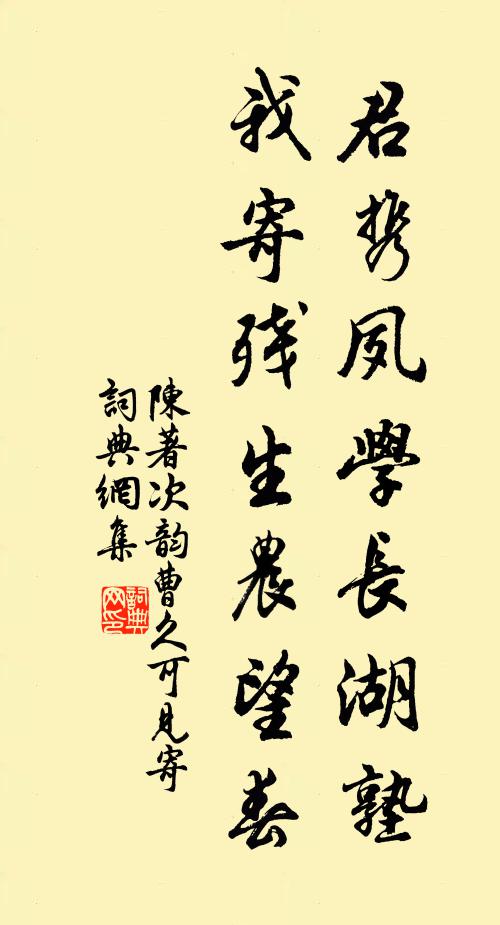 君携夙學長湖塾
我寄残生農望春
陳著次韵曹久可見寄
詞典網集
詞典网印